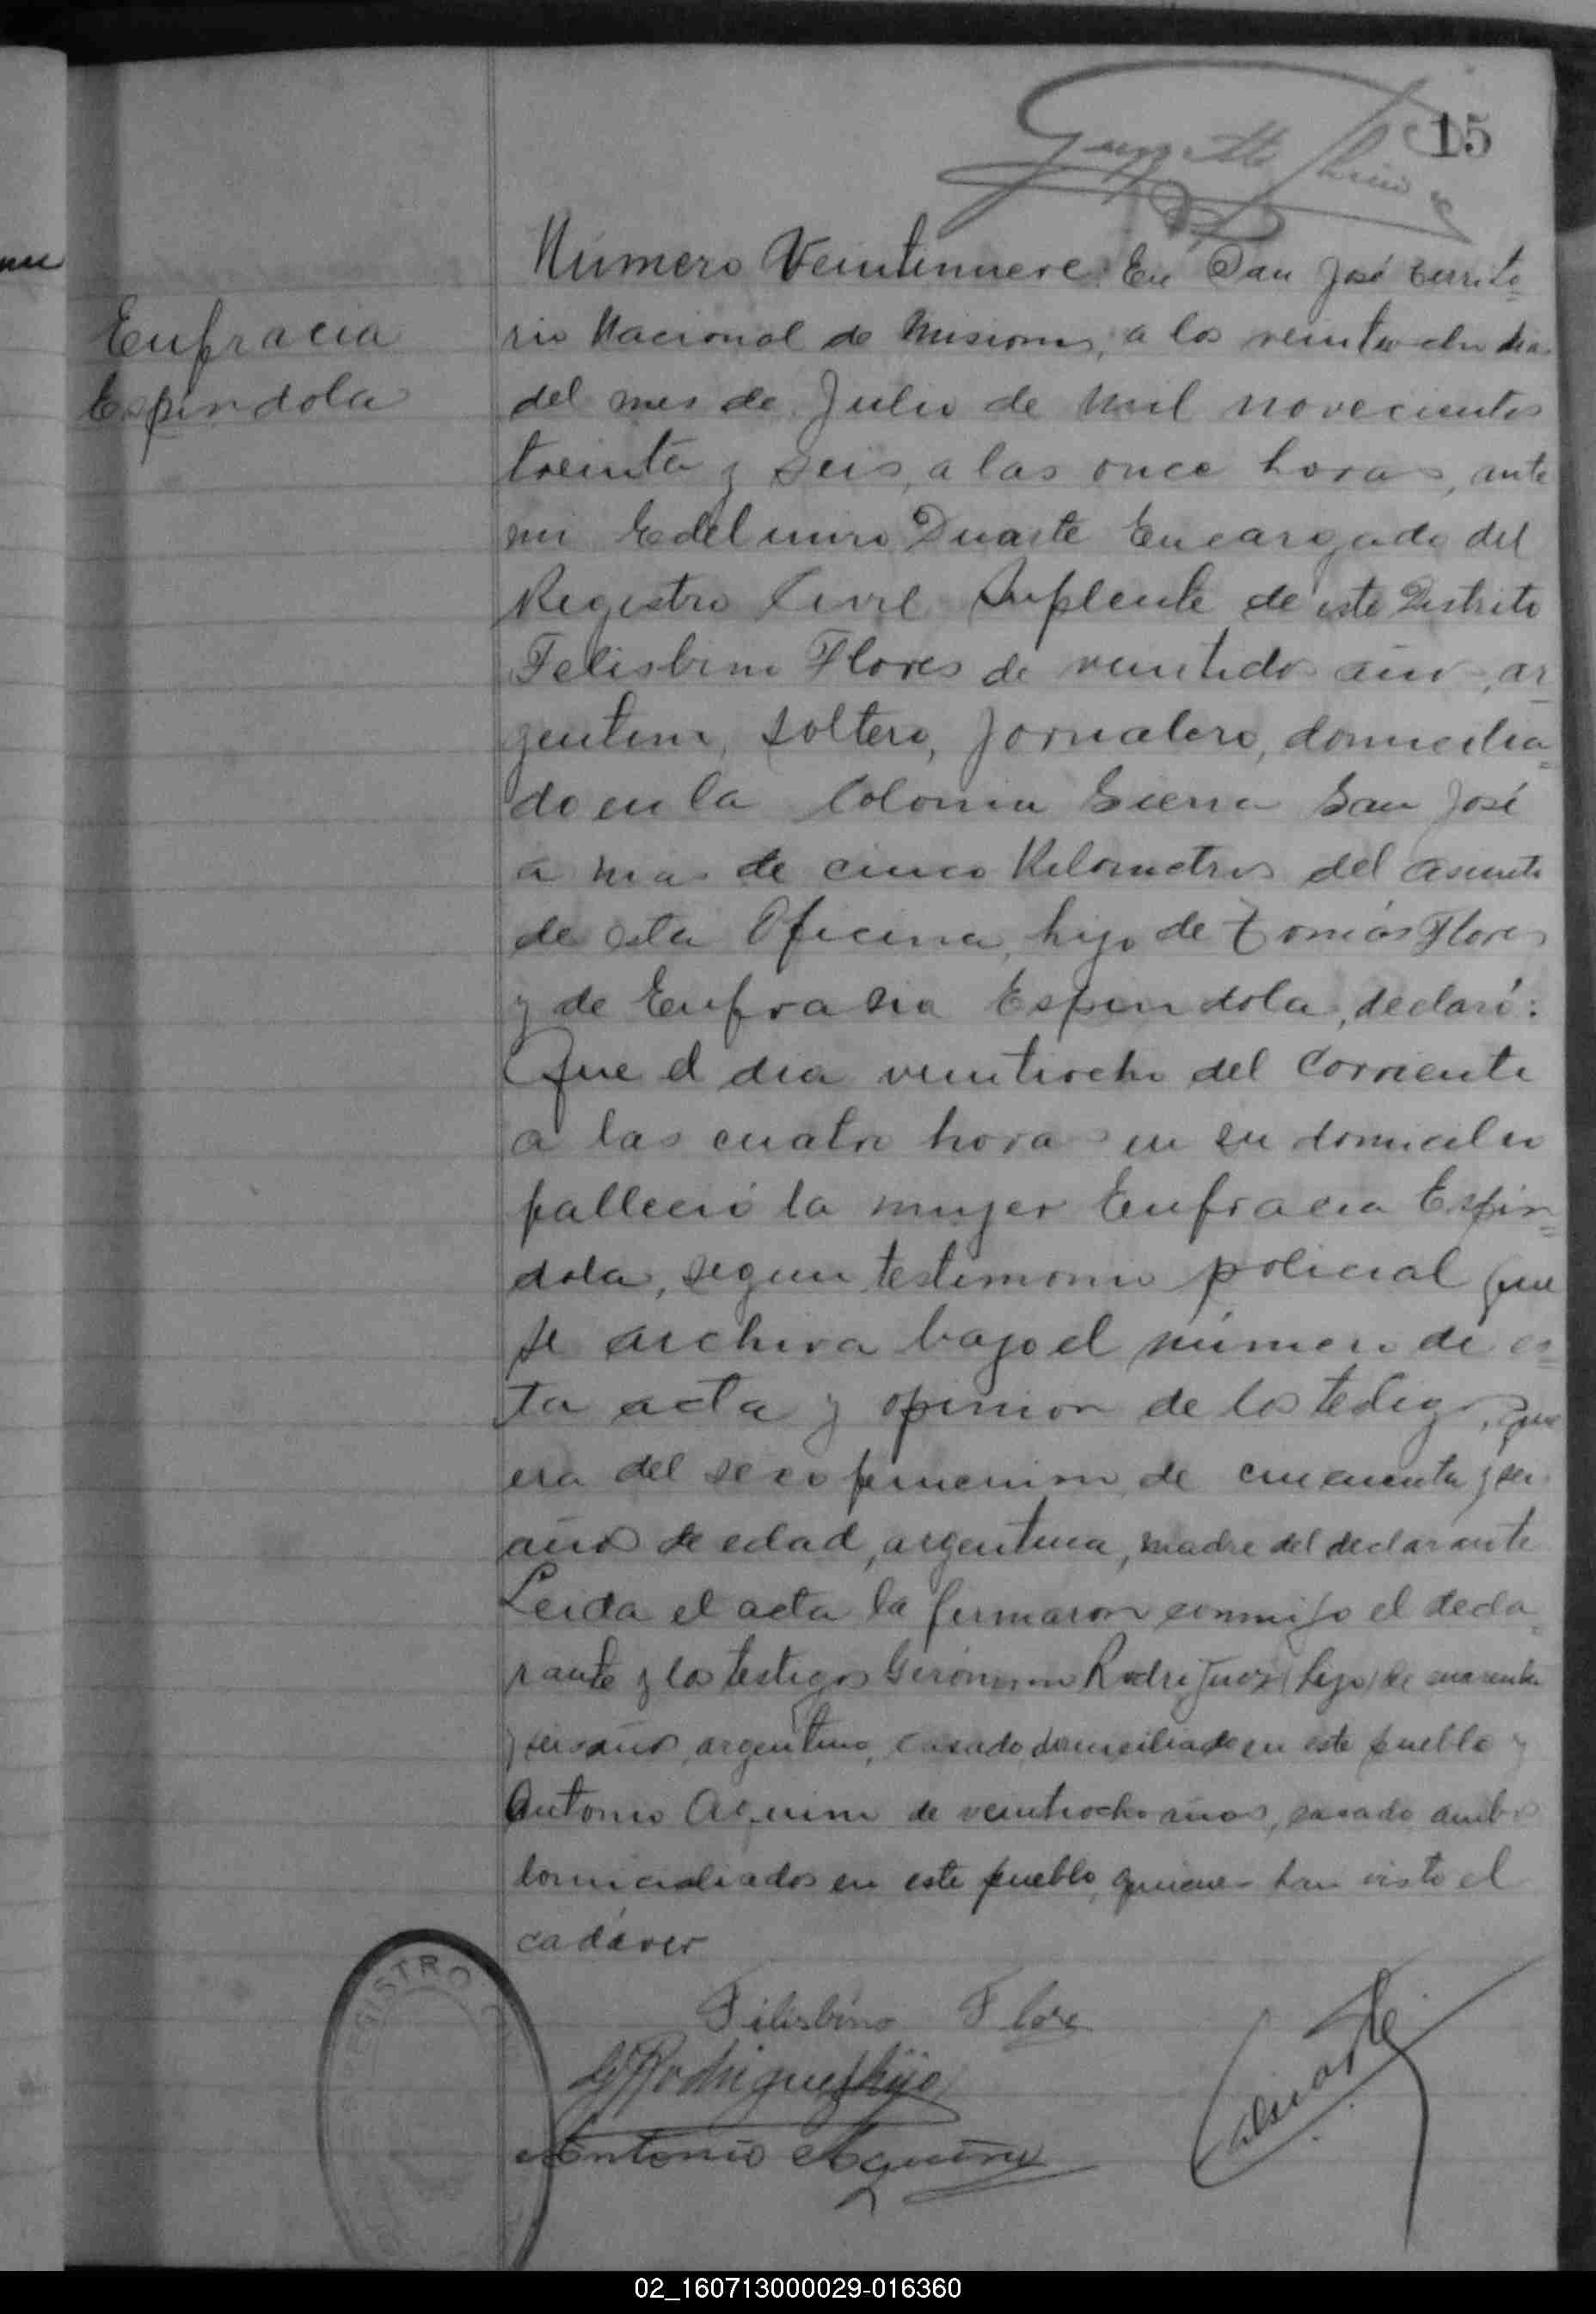 15
Número Veintinueve: En San José territo=
Eufracia
Espíndola
rio Nacional de Misiones, a los veintiocho dias
del mes de Julio de mil novecientos
treinta y seis, a las once horas, ante
mi Edelmiro Duarte Encargado del
Registro Civil Suplente de este Distrito
Felisbino Flores de veintidos años, ar
gentino, soltero, jornalero, domicilia=
do en la Colonia Sierra San José
a mas de cinco Kilometros del asiento
de esta Oficina, hijo de Tomás Flores
y de Eufrasia Espindola, declaró:
Que el dia veintiocho del corriente
a las cuatro horas en su domicilio
falleció la mujer Eufracia Espín=
dola, segun testimonio policial que
se archiva bajo el número de es=
ta acta y opinion de los tetigos, que
era del sexo femenino de cincuenta y seis
años de edad, argentina, madre del declarante
Leida el acta la firmaron conmigo el decla=
rante y los testigos Gerónimo Rodriguez (hijo) de cuarenta
y seis años, argentino, casado, domiciliado en este pueblo y
Antonio Aquino de veintiocho años, casado ambos
domiciliados en este pueblo, quienes han visto el
cadáver
Filisbino Flore
G Rodriguez hijo
Antonio Aquino
EDuarte
REGISTRO
02_160713000029-016360